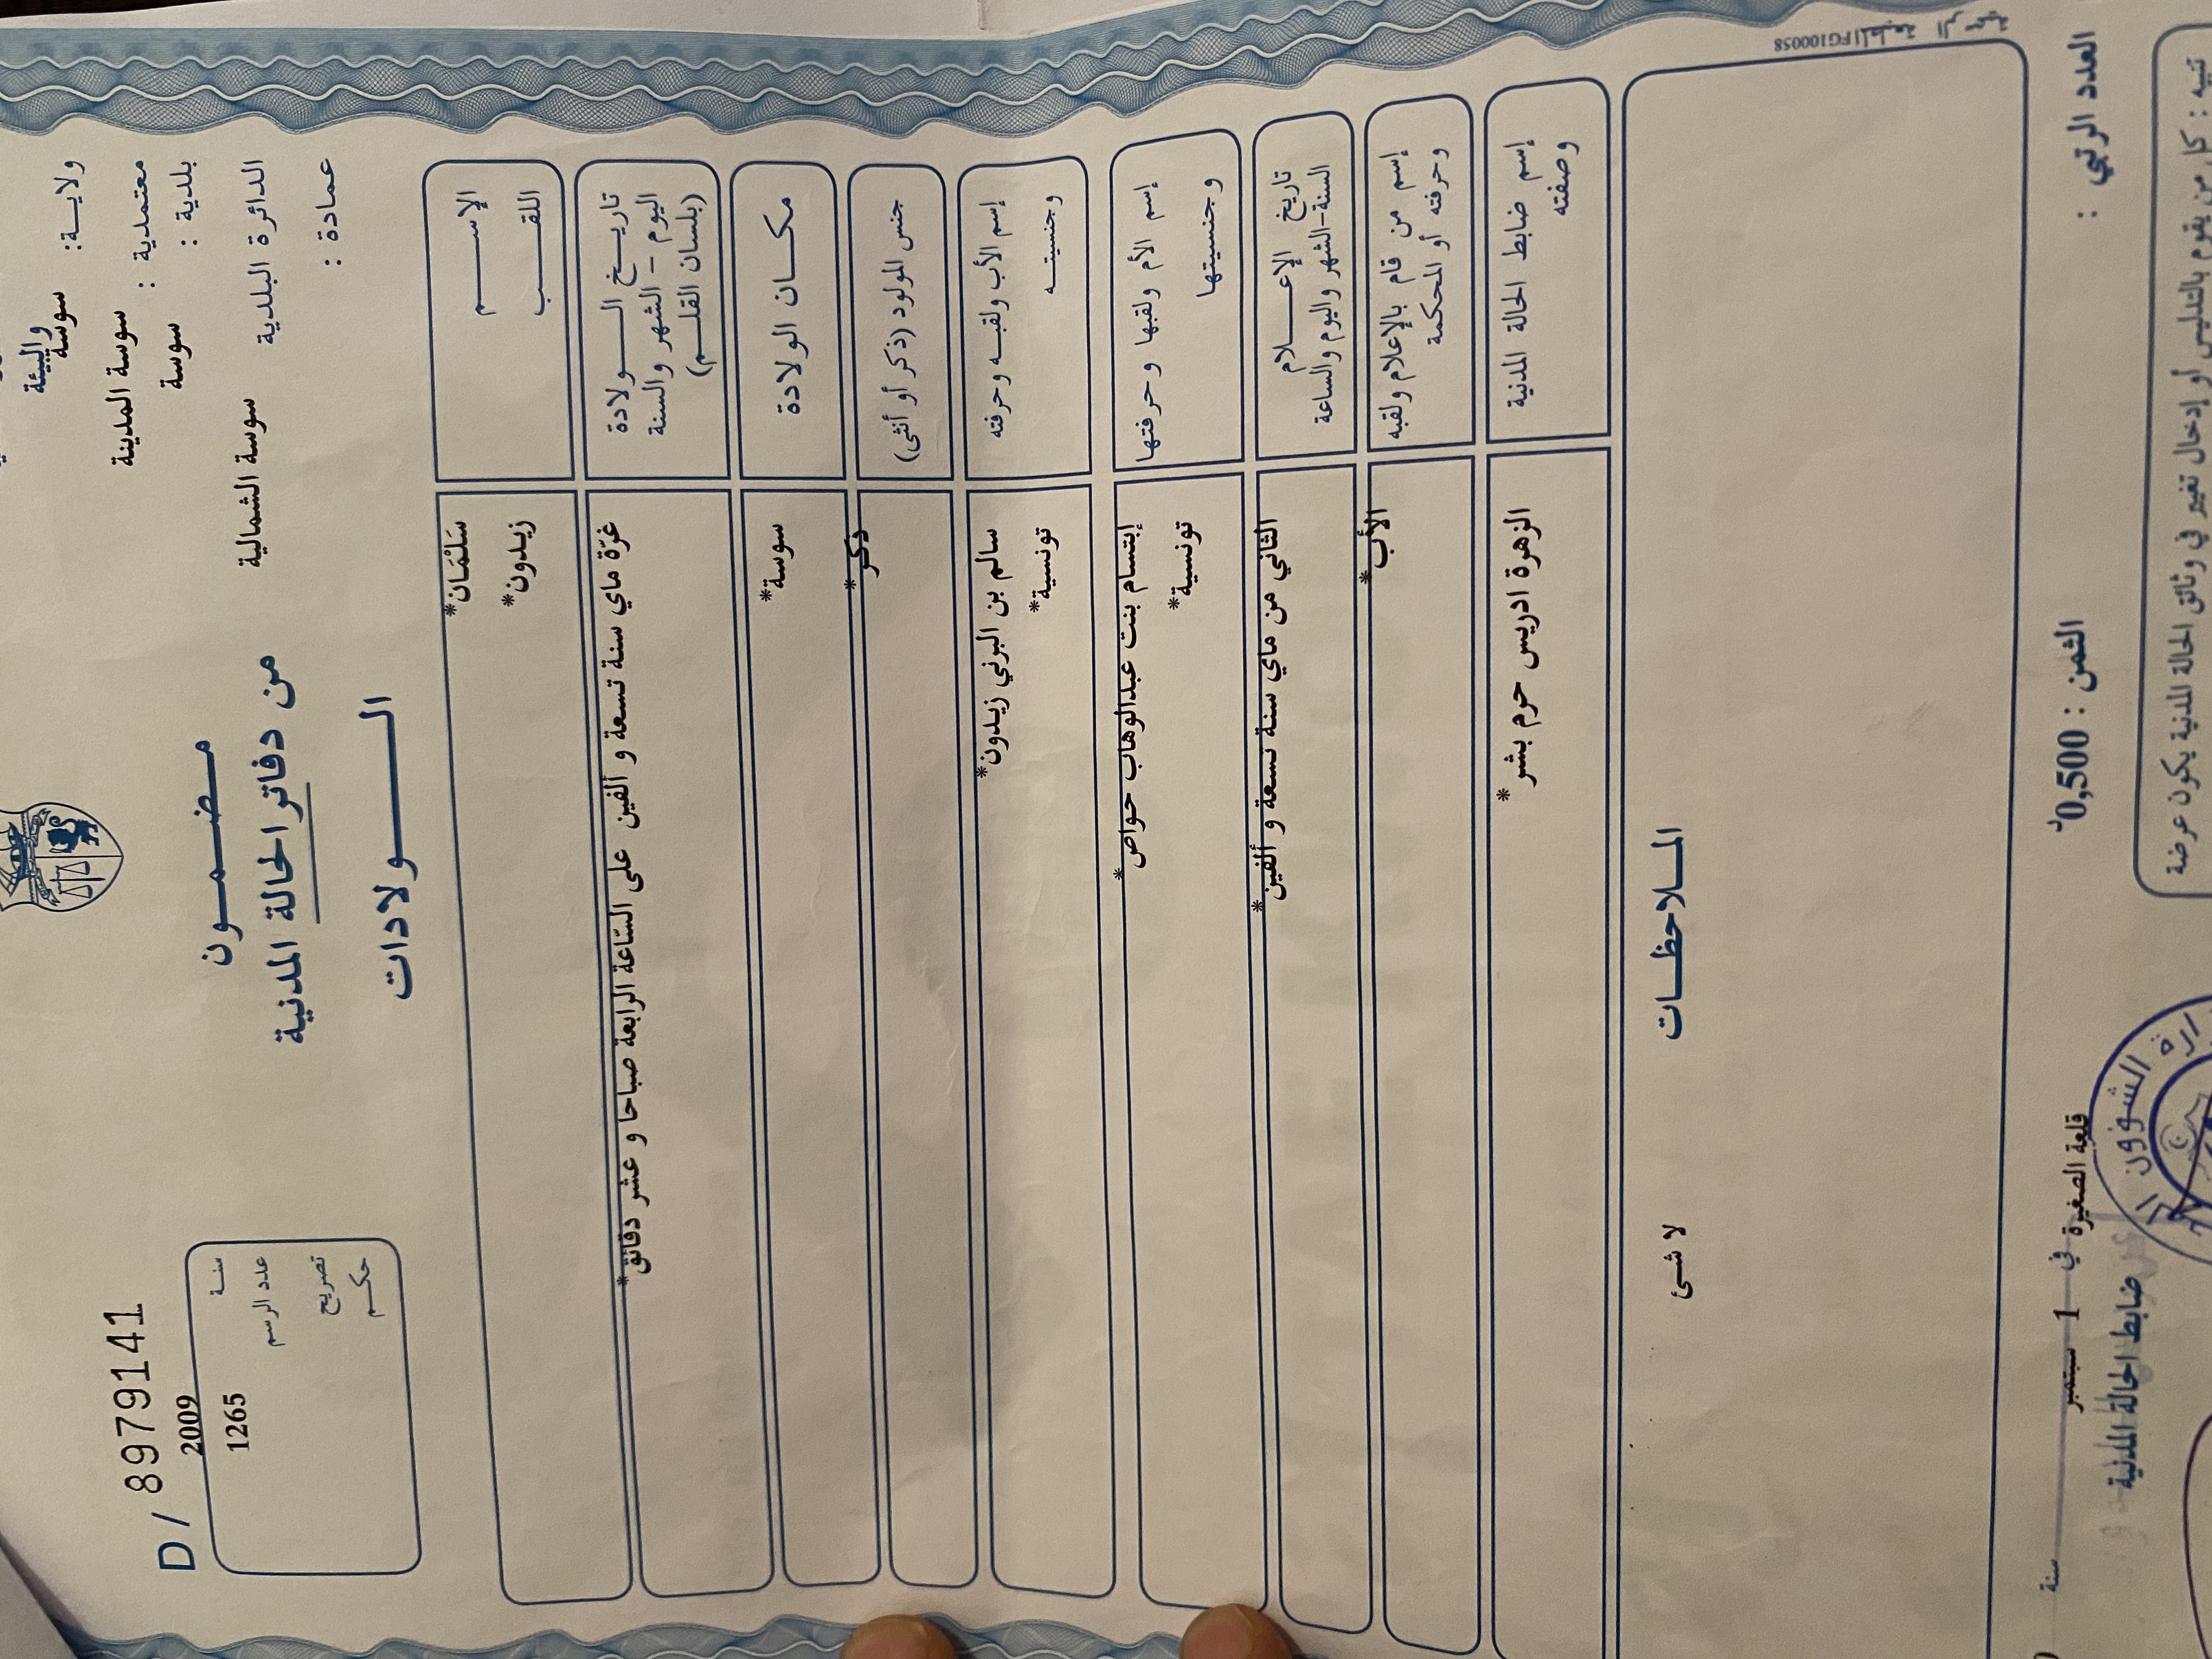 والبيئة
ولاية: سوسة
معتمدية : سوسة المدينة
بلدية : سوسة
الدائرة البلدية سوسة الشمالية
عمادة :
مضمون
من دفاتر الحالة المدنية
الولادات
D / 8979141
سنة 2009
عدد الرسم 1265
تصريح
حكم
الإسم *سَلْمَان
اللقب *زيدون
تاريخ الولادة
اليوم - الشهر والسنة
(بلسان القلم)
غرّة ماي سنة تسعة و ألفين على السّاعة الرابعة صباحا و عشر دقائق*
مكان الولادة *سوسة
جنس المولود (ذكر أو أنثى) *ذكر
إسم الأب ولقبه وحرفته سالم بن البرني زيدون*
وجنسيته تونسية*
إسم الأم ولقبها وحرفتها إبتسام بنت عبدالوهاب حواص*
وجنسيتها تونسية*
تاريخ الإعلام
السنة-الشهر واليوم والساعة
الثاني من ماي سنة تسعة و ألفين*
إسم من قام بالإعلام ولقبه
وحرفته أو المحكمة
الأب*
إسم ضابط الحالة المدنية
وصفته
الزهرة ادريس حرم بشر*
الملاحظات
لا شئ
FG100058
العدد الرتبي :
الثمن : 0,500د
قلعة الصغيرة في 1 سبتمبر سنة
ضابط الحالة المدنية
تنبيه : كل من يقوم بالتدليس أو إدخال تغيير في وثائق الحالة المدنية يكون عرضة